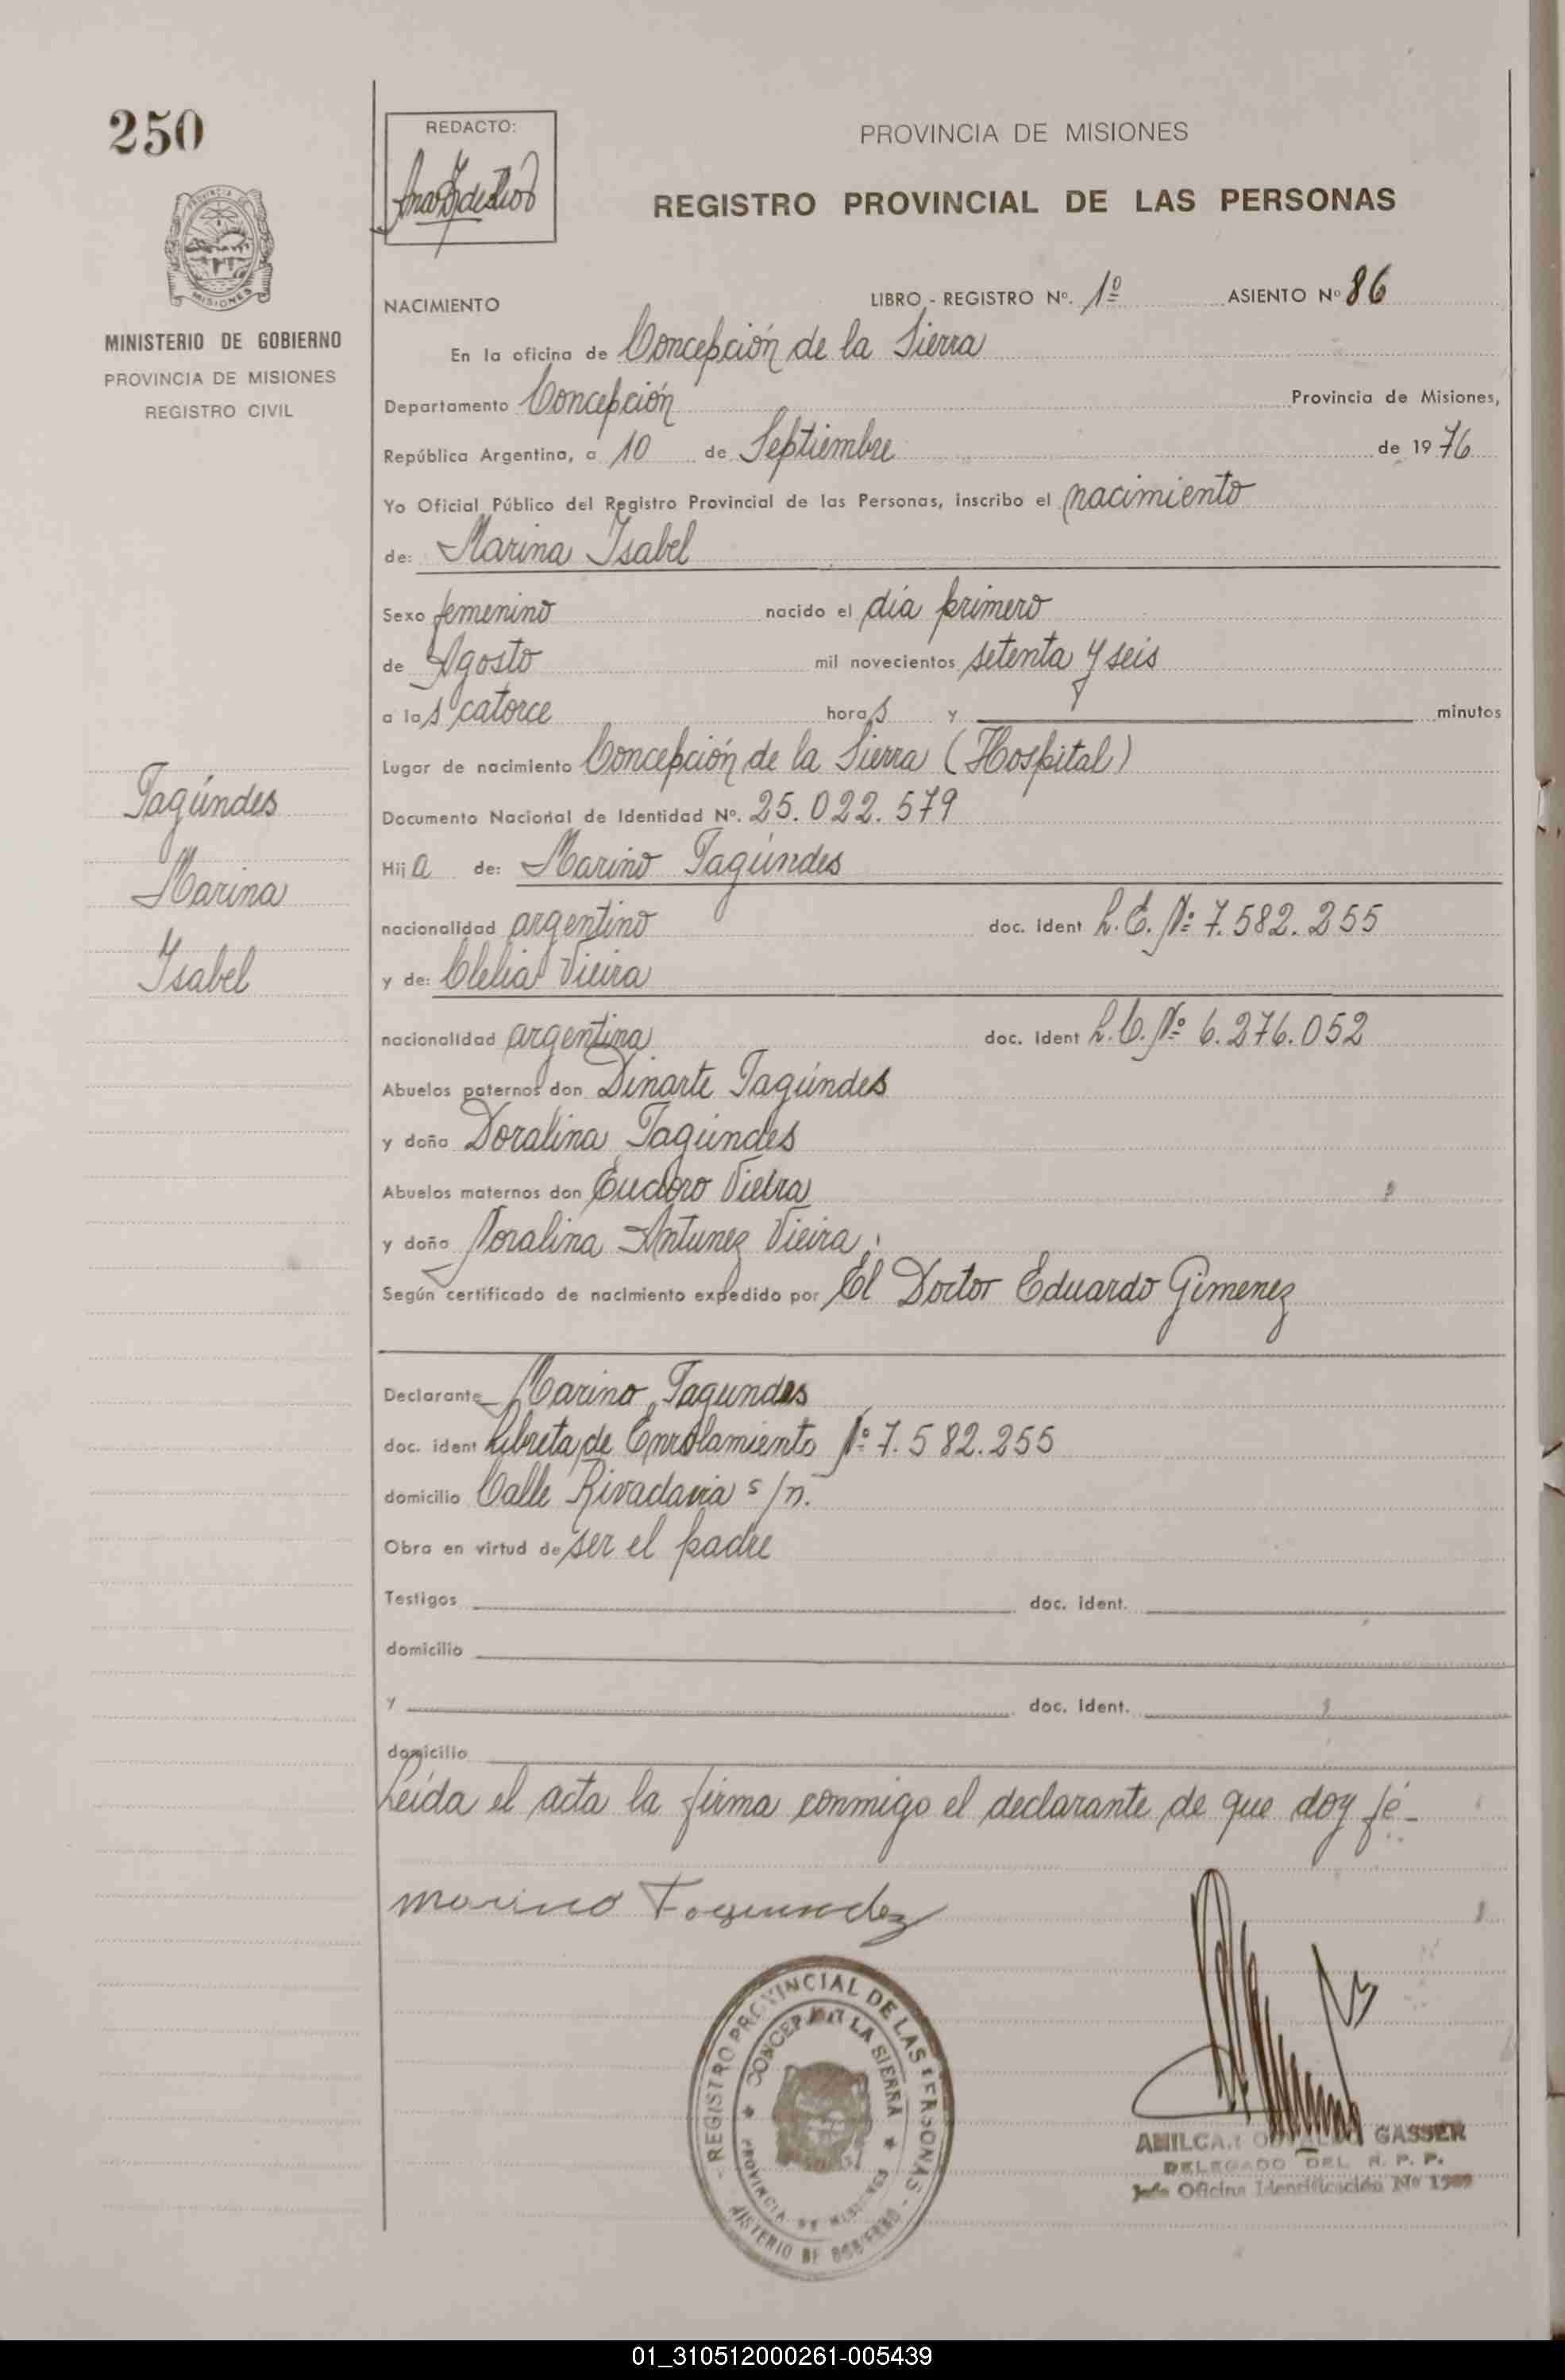 250
REDACTO:
PROVINCIA DE MISIONES
REGISTRO PROVINCIAL DE LAS PERSONAS
MISIONES
MINISTERIO DE GOBIERNO
PROVINCIA DE MISIONES
REGISTRO CIVIL
NACIMIENTO LIBRO - REGISTRO Nº. 1º ASIENTO Nº 86
En la oficina de Concepción de la Sierra
Departamento Concepción Provincia de Misiones,
República Argentina, a 10 de Septiembre de 1976
Yo Oficial Público del Registro Provincial de las Personas, inscribo el nacimiento
de: Marina Isabel
Sexo femenino nacido el día primero
de Agosto mil novecientos setenta y seis
a las catorce horas y minutos
Lugar de nacimiento Concepción de la Sierra (Hospital)
Documento Nacional de Identidad Nº. 25.022.579
Hija de: Marino Fagúndes
nacionalidad argentino doc. Ident L.E. Nº 7.582.255
y de: Clelia Vieira
nacionalidad argentina doc. Ident L.C. Nº 6.276.052
Abuelos paternos don Dinarte Fagúndes
y doña Doralina Fagúndes
Abuelos maternos don Eudoro Vieira
y doña Noralina Antunez Vieira.
Según certificado de nacimiento expedido por El Doctor Eduardo Gimenez
Fagúndes
Marina
Isabel
Declarante Marino Fagundes
doc. ident Libreta de Enrolamiento Nº 7.582.255
domicilio Calle Rivadavia s/n.
Obra en virtud de ser el padre
Testigos doc. ident.
domicilio
y doc. ident.
domicilio
Leída el acta la firma conmigo el declarante de que doy fé-
Marino Fagundez
REGISTRO PROVINCIAL DE LAS PERSONAS
CONCEP DE LA SIERRA
PROVINCIA DE MISIONES
MINISTERIO DE GOBIERNO
AMILCAR GASSER
DELEGADO DEL R. P. P.
Jefe Oficina Identificación Nº
01_310512000261-005439